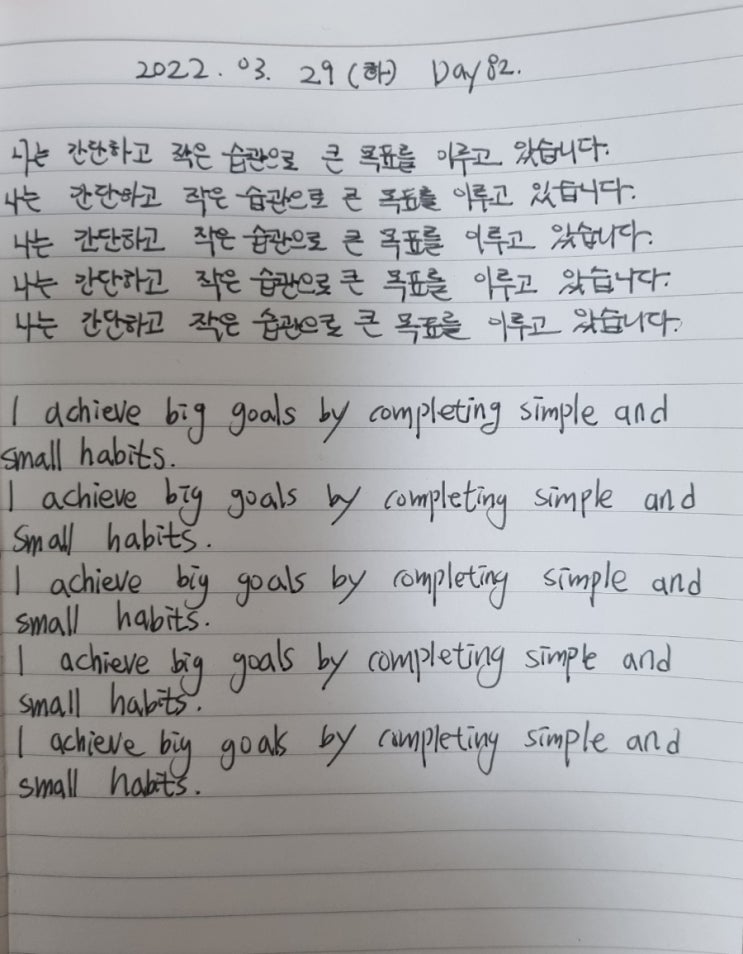 2022. 03. 29 (화) Day 82.
나는 간단하고 작은 습관으로 큰 목표를 이루고 있습니다.
나는 간단하고 작은 습관으로 큰 목표를 이루고 있습니다.
나는 간단하고 작은 습관으로 큰 목표를 이루고 있습니다.
나는 간단하고 작은 습관으로 큰 목표를 이루고 있습니다.
나는 간단하고 작은 습관으로 큰 목표를 이루고 있습니다.
I achieve big goals by completing simple and
small habits.
I achieve big goals by completing simple and
small habits.
I achieve big goals by completing simple and
small habits.
I achieve big goals by completing simple and
small habits.
I achieve big goals by completing simple and
small habits.